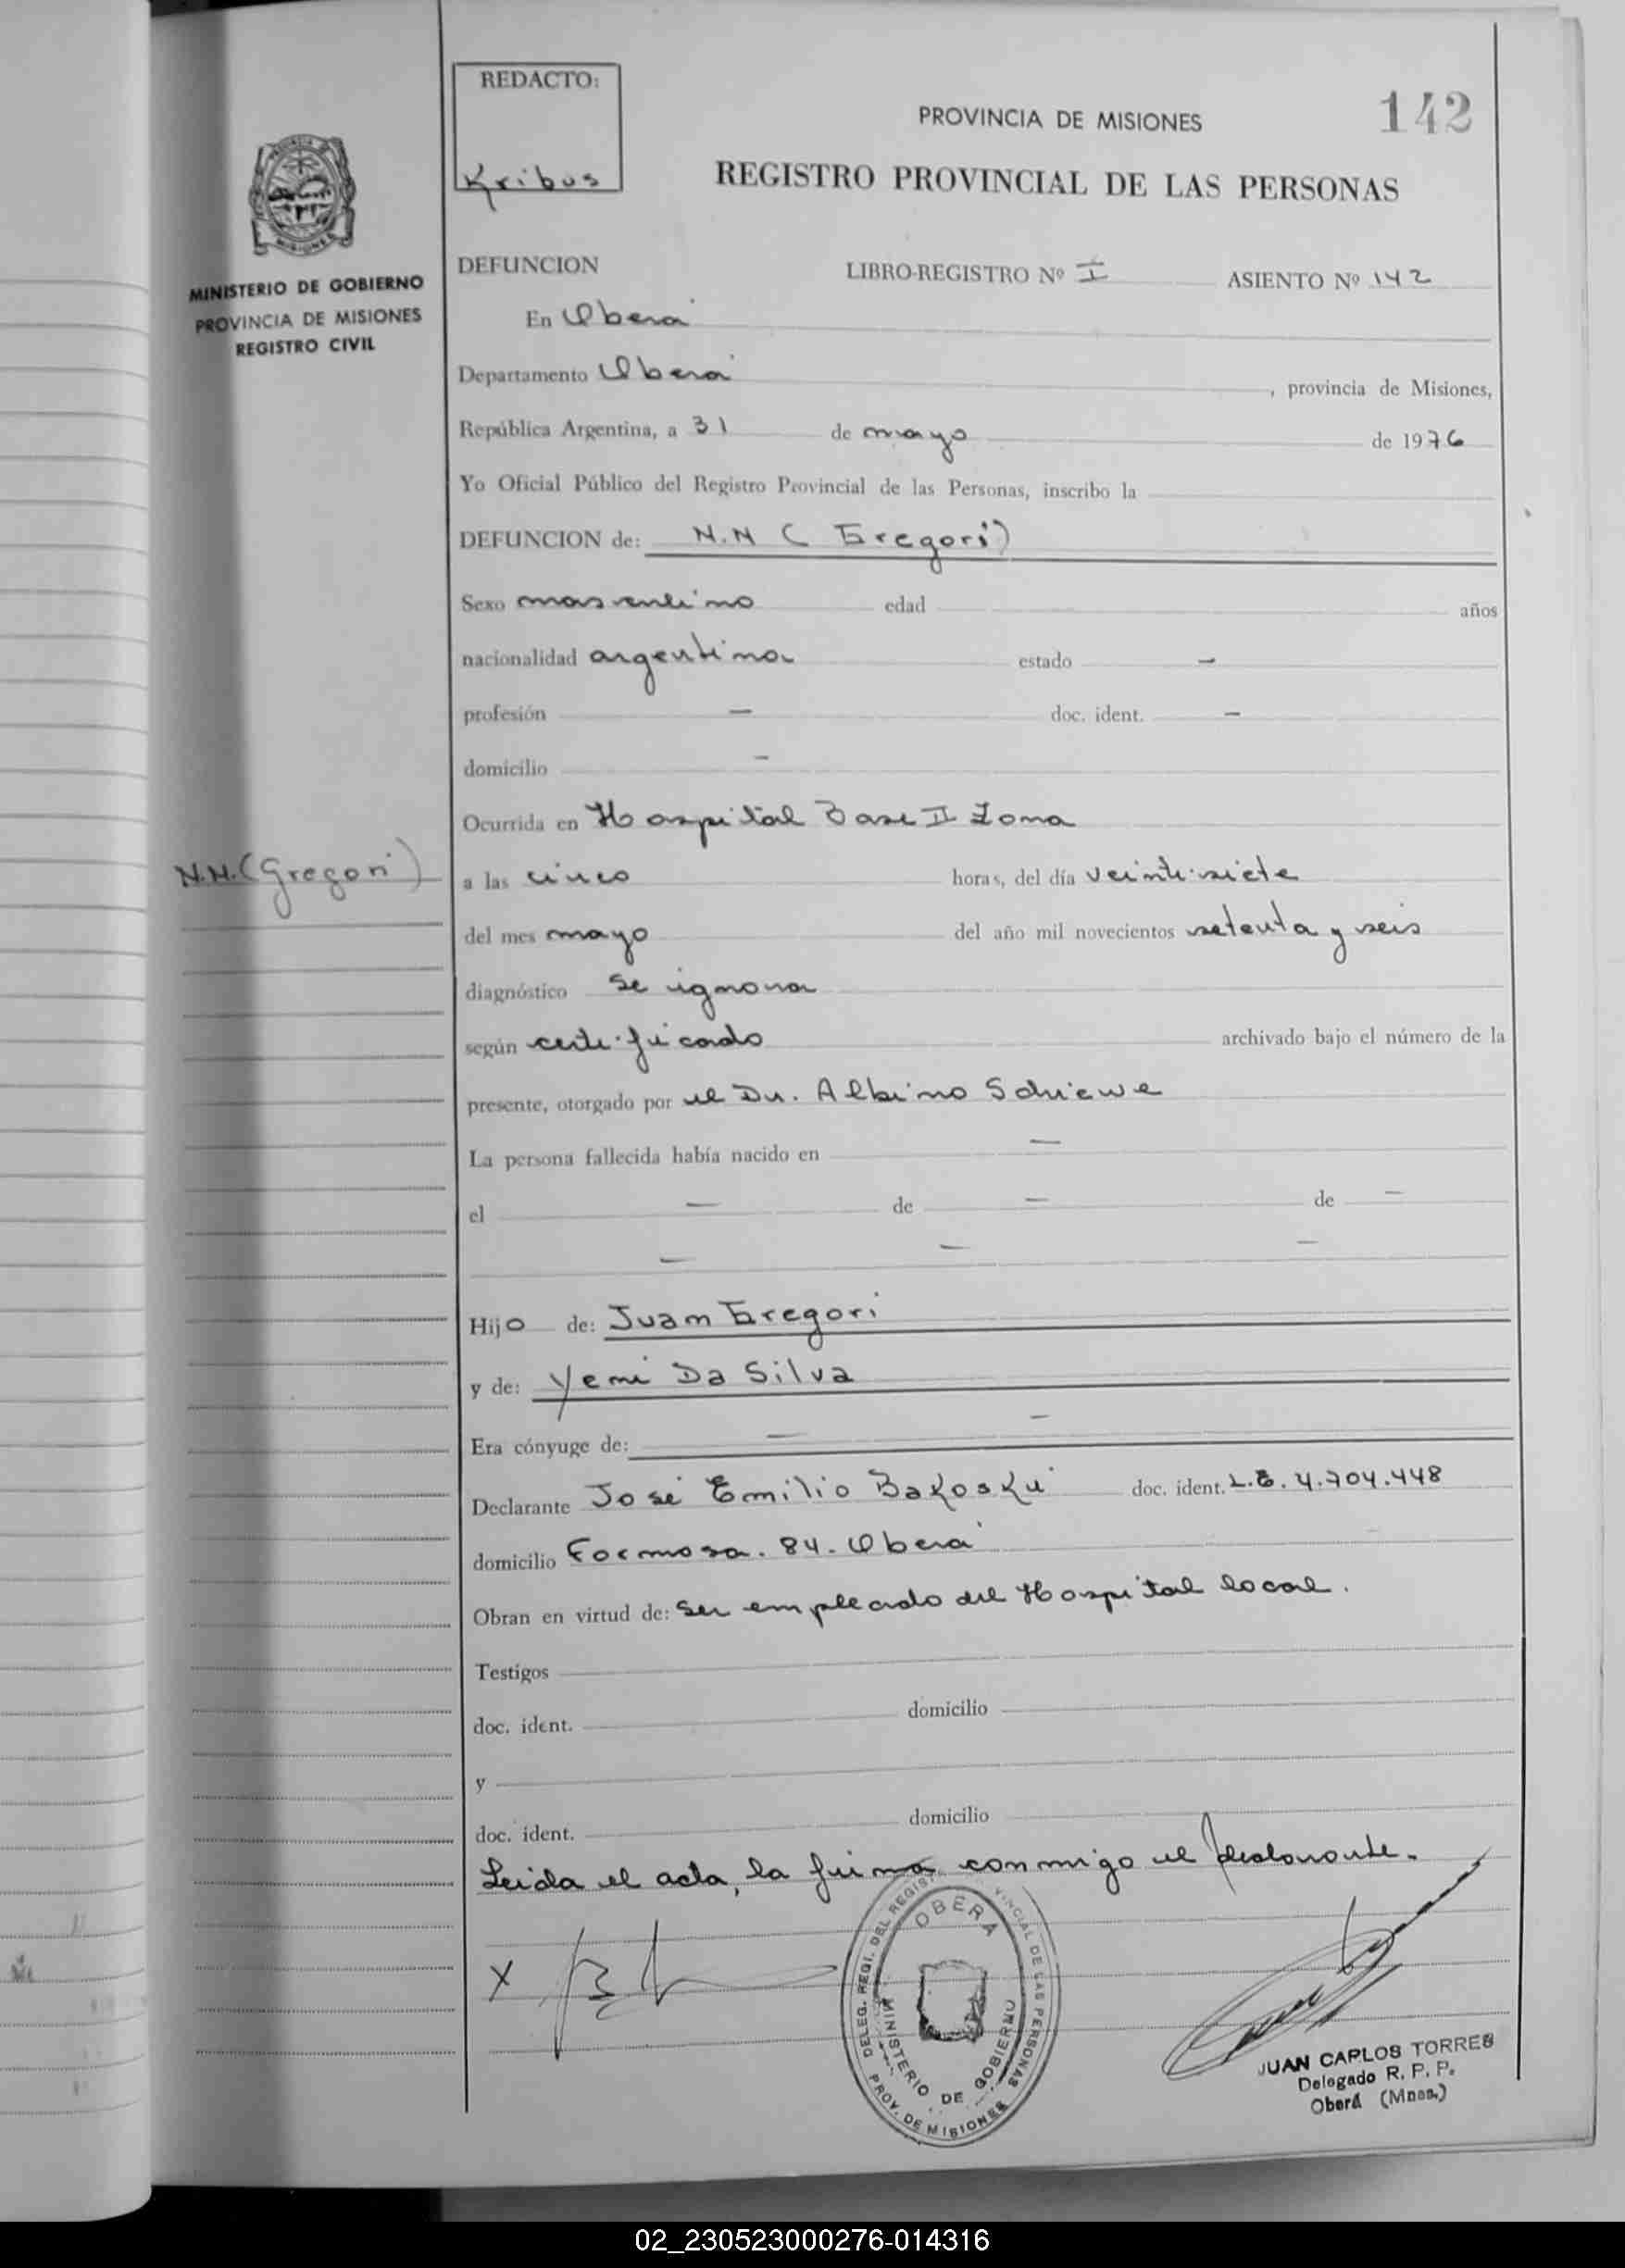 REDACTO:
Kribus
PROVINCIA DE MISIONES
142
REGISTRO PROVINCIAL DE LAS PERSONAS
MINISTERIO DE GOBIERNO
PROVINCIA DE MISIONES
REGISTRO CIVIL
DEFUNCION LIBRO-REGISTRO Nº I ASIENTO Nº 142
En Oberá
Departamento Oberá, provincia de Misiones,
República Argentina, a 31 de mayo de 1976
Yo Oficial Público del Registro Provincial de las Personas, inscribo la
DEFUNCION de: N.N ( Gregori)
Sexo masculino edad años
nacionalidad argentina estado —
profesión — doc. ident. —
domicilio —
Ocurrida en Hospital Base II Zona
N.N. (Gregori)
a las cinco horas, del día veintisiete
del mes mayo del año mil novecientos setenta y seis
diagnóstico se ignora
según certificado archivado bajo el número de la
presente, otorgado por el Dr. Albino Schiewe
La persona fallecida había nacido en —
el — de — de —
— — —
Hijo de: Juan Gregori
y de: Yeni Da Silva
Era cónyuge de: — —
Declarante José Emilio Bakoski doc. ident. L.E. 4.704.448
domicilio Formosa. 84. Oberá
Obran en virtud de: Ser empleado del Hospital local.
Testigos
doc. ident. domicilio
y
doc. ident. domicilio
Leida el acta, la firma conmigo el declarante.
X
OBERA
MINISTERIO DE GOBIERNO
PROV. DE MISIONES
JUAN CARLOS TORRES
Delegado R. P. P.
Oberá (Mnes.)
02_230523000276-014316